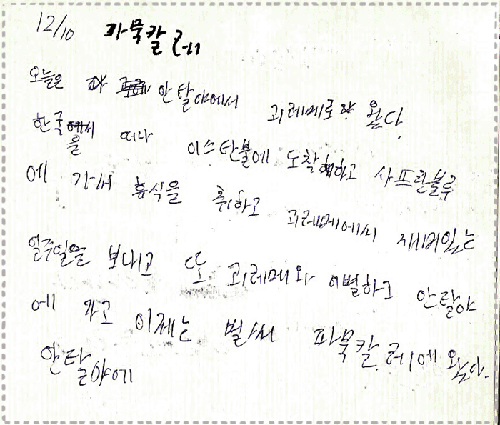 12/10 파묵칼레
오늘은 안탈야에서 괴레메로 왔다.
한국을 떠나 이스탄불에 도착하고 샤프란볼루
에 가서 휴식을 취하고 괴레메에서 재미있는
일주일을 보내고 또 괴레메와 이별하고 안탈야
에 가고 이제는 벌써 파묵칼레에 왔다.
안탈야에